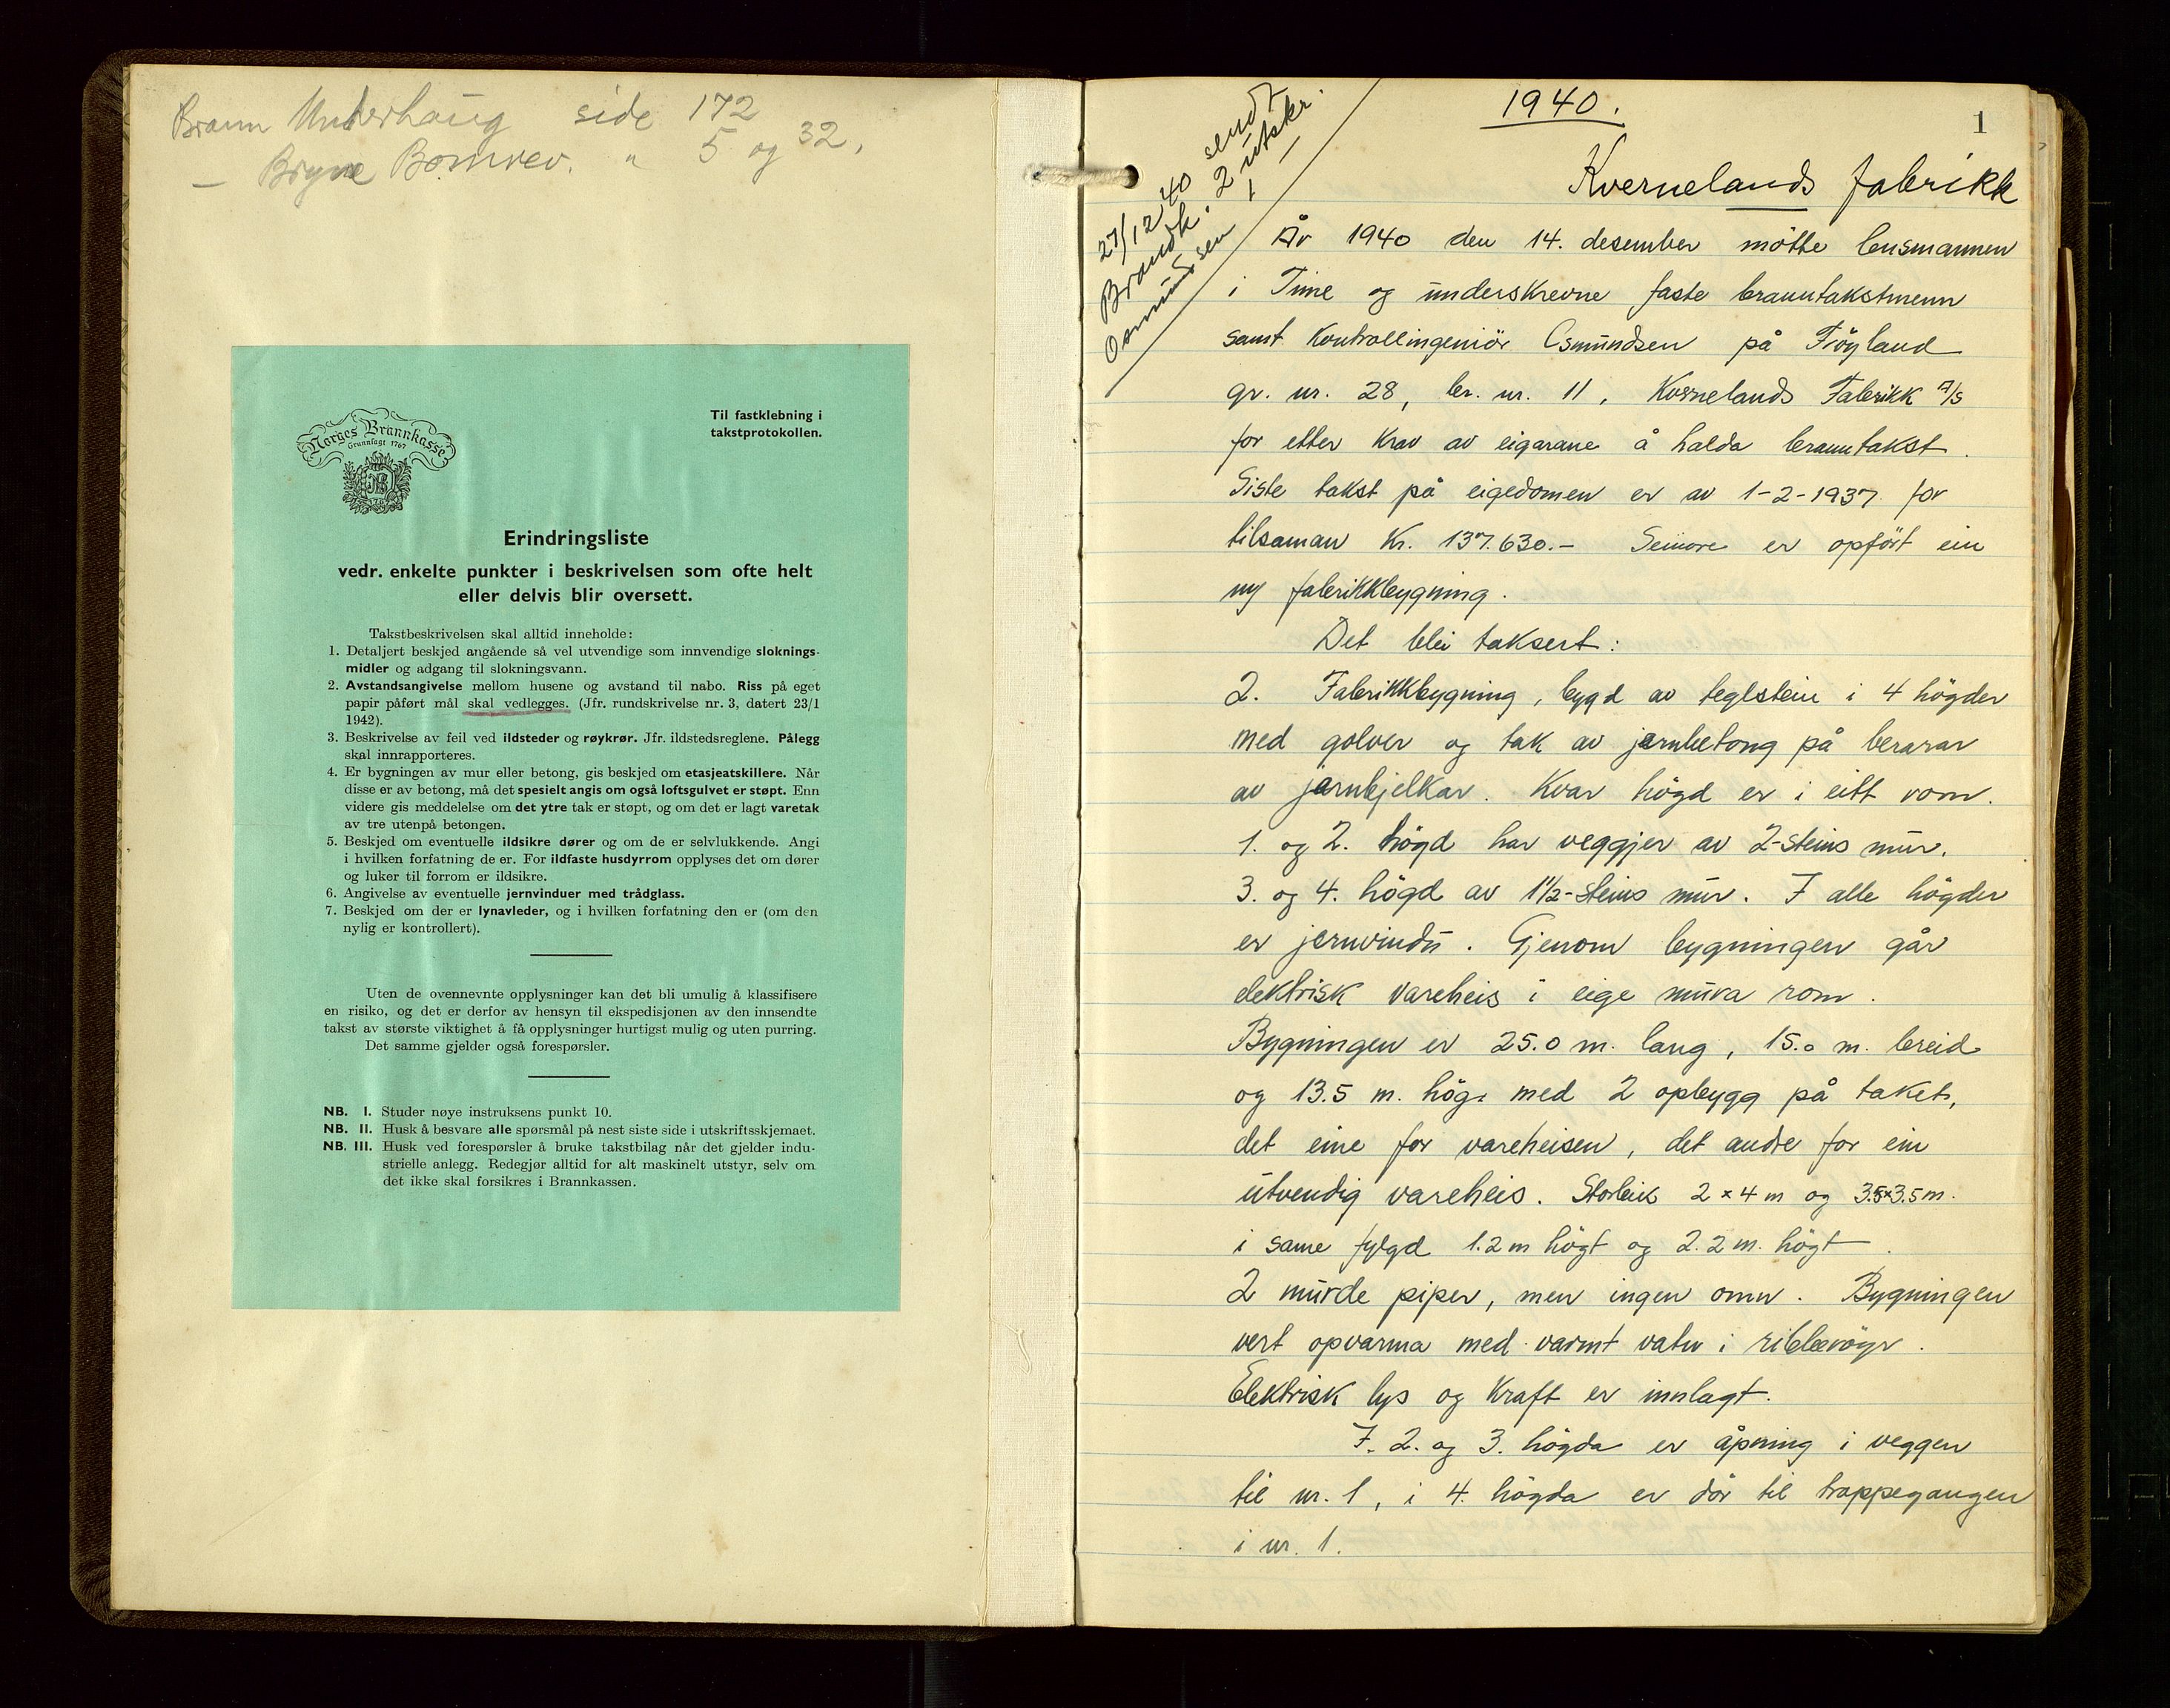 Brann Underhaug side 172
— Bryne Bomvev. " 5 og 32,
Norges Brannkasse
Grunnlagt 1767
Til fastklebning i
takstprotokollen.
Erindringsliste
vedr. enkelte punkter i beskrivelsen som ofte helt
eller delvis blir oversett.
Takstbeskrivelsen skal alltid inneholde:
1. Detaljert beskjed angående så vel utvendige som innvendige sloknings-
midler og adgang til slokningsvann.
2. Avstandsangivelse mellom husene og avstand til nabo. Riss på eget
papir påført mål skal vedlegges. (Jfr. rundskrivelse nr. 3, datert 23/1
1942).
3. Beskrivelse av feil ved ildsteder og røykrør. Jfr. ildstedsreglene. Pålegg
skal innrapporteres.
4. Er bygningen av mur eller betong, gis beskjed om etasjeatskillere. Når
disse er av betong, må det spesielt angis om også loftsgulvet er støpt. Enn
videre gis meddelelse om det ytre tak er støpt, og om det er lagt varetak
av tre utenpå betongen.
5. Beskjed om eventuelle ildsikre dører og om de er selvlukkende. Angi
i hvilken forfatning de er. For ildfaste husdyrrom opplyses det om dører
og luker til forrom er ildsikre.
6. Angivelse av eventuelle jernvinduer med trådglass.
7. Beskjed om der er lynavleder, og i hvilken forfatning den er (om den
nylig er kontrollert).
Uten de ovennevnte opplysninger kan det bli umulig å klassifisere
en risiko, og det er derfor av hensyn til ekspedisjonen av den innsendte
takst av største viktighet å få opplysninger hurtigst mulig og uten purring.
Det samme gjelder også forespørsler.
NB. I. Studer nøye instruksens punkt 10.
NB. II. Husk å besvare alle spørsmål på nest siste side i utskriftsskjemaet.
NB. III. Husk ved forespørsler å bruke takstbilag når det gjelder indu-
strielle anlegg. Redegjør alltid for alt maskinelt utstyr, selv om
det ikke skal forsikres i Brannkassen.
1940.
1
27/12 40 sendt
Brandk. 2 utskr.
Osmundsen 1 —
Kvernelands fabrikk
År 1940 den 14. desember møtte lensmannen
i Time og underskrevne faste branntakstmenn
samt kontrollingeniör Osmundsen på Fröyland
gr. nr. 28, br. nr. 11, Kvernelands Fabrikk A/S
for etter krav av eigarane å halda branntakst.
Siste takst på eigedomen er av 1-2-1937 for
tilsaman kr. 137.630.- Seinare er opfört ein
ny fabrikkbygning.
Det blei taksert:
2. Fabrikkbygning, bygd av teglstein i 4 högder
med golver og tak av jernbetong på berarar
av jarnbjelkar. Kvar högd er i eitt rom.
1. og 2. högd har veggjer av 2-steins mur.
3. og 4. högd av 1½-steins mur. I alle högder
er jernvindu. Gjenom bygningen går
elektrisk vareheis i eige mura rom.
Bygningen er 25.0 m. lang, 15.0 m. breid
og 13.5 m. hög. med 2 opbygg på taket,
det eine for vareheisen, det andre for ein
utvendig vareheis. Storleik 2 × 4 m og 3.5×3.5 m.
i same fylgd 1.2 m högt og 2.2 m. högt.
2 murde piper, men ingen omn. Bygningen
vert opvarma med varmt vatn i ribberöyr.
Elektrisk lys og kraft er innlagt.
I. 2. og 3. högda er åpning i veggen
til nr. 1, i 4. högda er dör til trappegangen
i nr. 1.